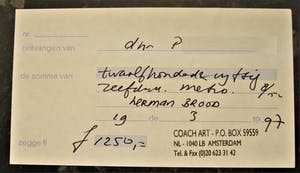 nr.
ontvangen van dhr P
de somma van twaalfhonderd vijftig
zeefdr. metro.
HERMAN BROOD
19 3 1997
zegge fl f 1250,-
COACH ART - P.O. BOX 59559
NL - 1040 LB AMSTERDAM
Tel. & Fax (0)20 623 31 42